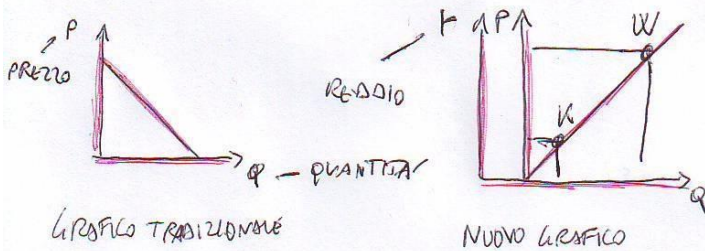 P
PREZZO
Q - QUANTITA'
GRAFICO TRADIZIONALE
REDDIO
P
W
K
Q
NUOVO GRAFICO